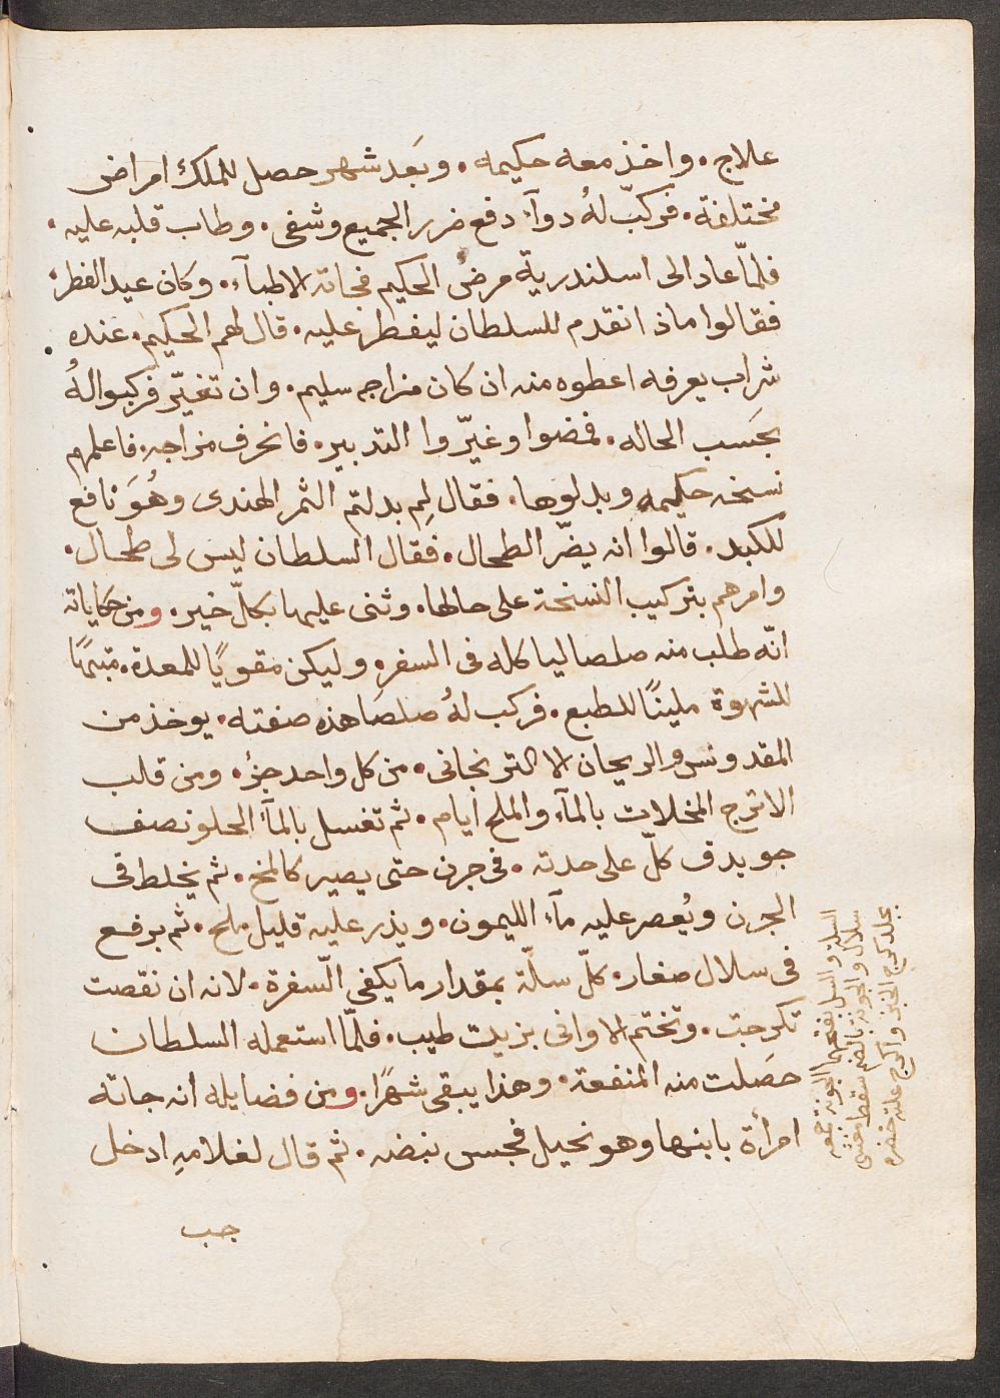 علاج. واخذ معه حكيمه. وبَعد شهر حصل للملك امراض
مختلفة. فركّب لهُ دوآء دفع ضرر الجميع وشفى. وطاب قلبه عليه.
فلمّا عاد الى اسلندرية مرضُ الحكيم فجاته الاطبآء. وكان عيد الفطر
فقالوا ماذا نقدم للسلطان ليفطر عليه. قال لهم الحكيم. عنده
شراب يعرفه اعطوه منه ان كان مزاجه سليم. وان تغيّر فركبوا لهُ
بحَسب الحاله. فمضوا وغيّروا التدبير. فانحرف مزاجه. فاعلمهم
نسخه حكيمه وبدلوها. فقال لِم بدلتم الثمر الهندى وهُوَ نافع
للكبد. قالوا انه يضّر الطحال. فقال السلطان ليس لى طحال.
وامرهم بتركيب النسخة على حالها. وثنى عليها بكلّ خير. ومن حكاياته
انّه طلب منه صلصا لياكله فى السفر. وليكن مقويًا للمعدة.
للشهوة ملينًا للطبع. فركب لهُ صلصَا هذه صفته. يوخذ من
المقدونس والريحان الترنجانى. من كل واحد جزؤ. ومن قلب
الاترج المخلات بالمآء والملح ايام. ثم تغسل بالمآء الحلو نصف
جو يدق كلّ على حدته. فى جرن حتى يصير كالمخ. ثم يخلط فى
الجرن ويُعصر عليه مآء الليمون. ويذر عليه قليل ملح. ثم يرفع
فى سلال صغار. كلّ سلّة بمقدار ما يكفى السّفرة. لانه ان نقصت
تكرجت. وتختم الاوانى بزيت طيب. فلمّا استعمله السلطان
حَصلت منه المنفعة. وهذا يبقى شهرًا. ومن فضايله انه جاته
امرأة بابنها وهو نحيل فجس نبضه. ثم قال لغلامهِ ادخل
جب
السلة والسل بفتحهما الجونة جمعه
سلال والجونة بالضم سفط مغشى
بجلد